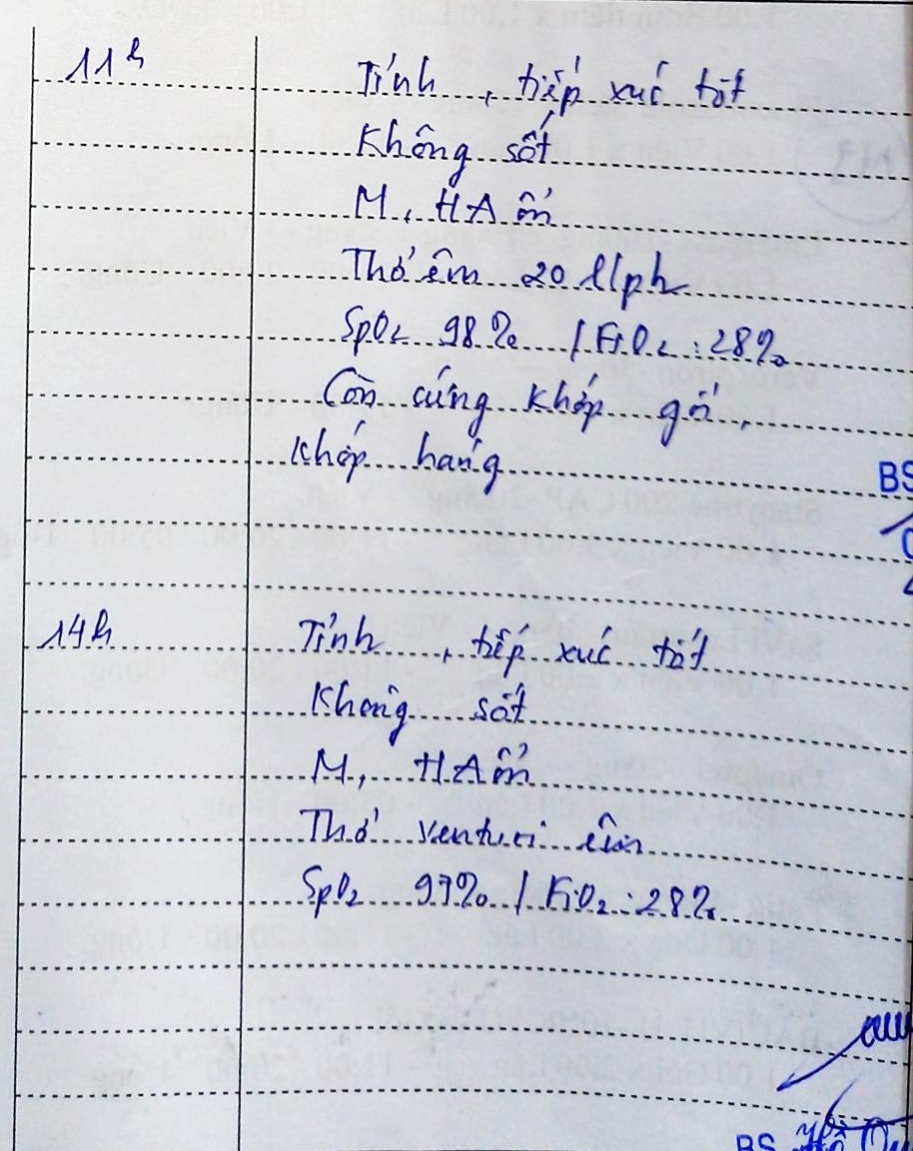 11h
Tỉnh, tiếp xúc tốt
Không sốt
M, HA ổn
Thở êm 20 l/ph
SpO₂ 98% / FiO₂: 28%
Còn cứng khớp gối,
khớp háng
BS
14h
Tỉnh, tiếp xúc tốt
Không sốt
M, HA ổn
Thở venturi êm
SpO₂ 97% / FiO₂ 28%
BS. Hồ